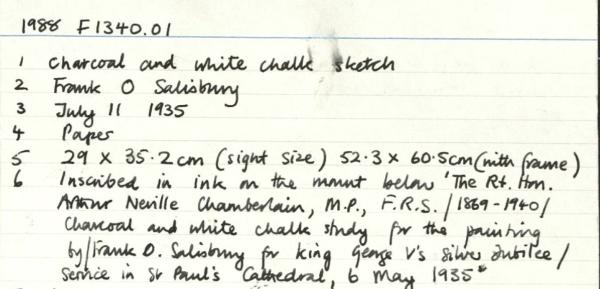 1988 F1340.01
1 Charcoal and white chalk sketch
2 Frank O Salisbury
3 July 11 1935
4 Paper
5 29 x 35.2cm (sight size) 52.3 x 60.5cm (with frame)
6 Inscribed in ink on the mount below 'The Rt. Hon.
Arthur Neville Chamberlain, M.P., F.R.S. / 1869-1940/
Charcoal and white chalk study for the painting
by/Frank O. Salisbury for King George V's Silver Jubilee /
Service in St Paul's Cathedral, 6 May 1935"